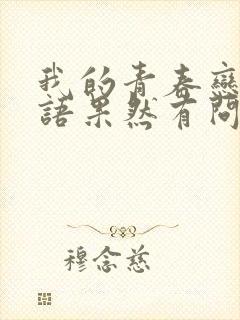 我的青春戀
語果然有問
穆念慈